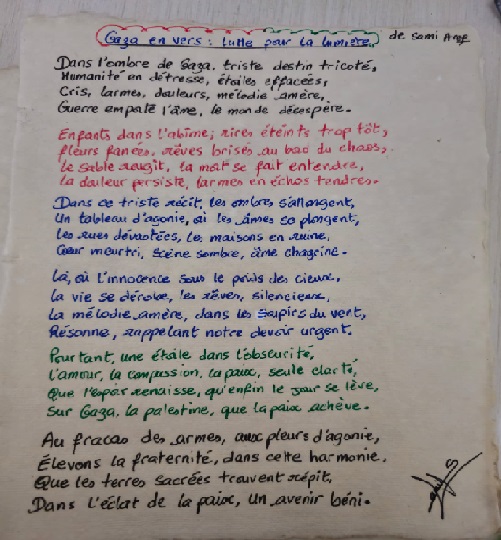 Gaza en vers : lutte pour la lumière. de Sami
Dans l'ombre de Gaza, triste destin tricoté,
Humanité en détresse, étoiles effacées,
Cris, larmes, douleurs, mélodie amère,
Guerre empale l'âme, le monde désespère.
Enfants dans l'abîme, rires éteints trop tôt,
fleurs fanées, rêves brisés au bad du chaos,
le sable rougit, la mort se fait entendre,
la douleur persiste, larmes en échos tendres.
Dans ce triste récit, les ombres s'allongent,
Un tableau d'agonie, où les âmes se plongent,
les rues dévastées, les maisons en ruine,
Cœur meurtri, scène sombre, âme chagrine.
Là, où l'innocence sous le poids des cieux,
la vie se dérobe, les rêves, silencieux,
La mélodie amère, dans les soupirs du vent,
Résonne, rappelant notre devoir urgent.
Pourtant, une étoile dans l'obscurité,
l'amour, la compassion, la paix, seule clarté,
Que l'espoir renaisse, qu'enfin le jour se lève,
Sur Gaza, la palestine, que la paix achève.
Au fracas des armes, aux pleurs d'agonie,
Élevons la fraternité, dans cette harmonie.
Que les terres sacrées trouvent répit,
Dans l'éclat de la paix, un avenir béni.